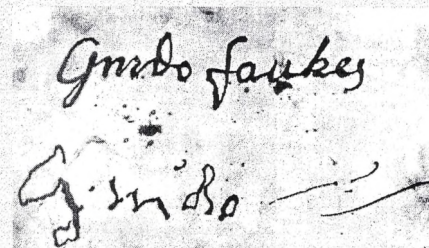 Guido fawkes
Guido